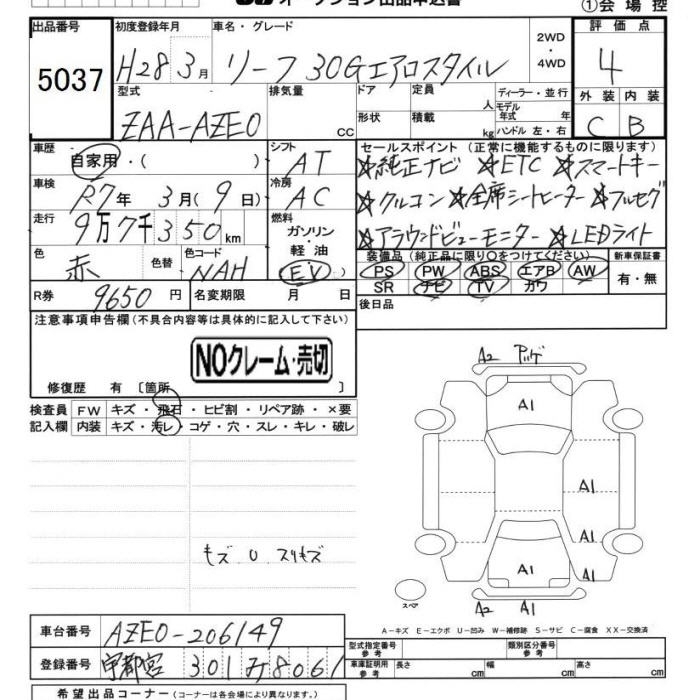 オークション出品申込書
①会場控
出品番号 初度登録年月 車名・グレード 2WD ・ 4WD 評価点
5037 H28 3月 リーフ 30Gエアロスタイル 4
型式 排気量 ドア 定員 人 ディーラー・並行 外装 内装
ZAA-AZE0 cc 形状 積載 kg モデル年式 年 C B
ハンドル 左・右
車歴 自家用・( ) シフト AT セールスポイント (正常に機能するものに限ります)
☆純正ナビ ☆ETC ☆スマートキー
車検 R7年 3月(9日) 冷房 AC ☆クルコン ☆全席シートヒーター ☆フルセグ
走行 9万7千350km 燃料 ガソリン・軽油 EV ☆アラウンドビューモニター ☆LEDライト
色 赤 色替 色コード NAH 装備品 (純正品に限り○をつけてください) 新車保証書
PS PW ABS エアB AW 有・無
SR ナビ TV カワ
R券 9650円 名変期限 月 日 後日品
注意事項申告欄 (不具合内容等は具体的に記入して下さい)
NOクレーム・売切
修復歴 有 〔箇所
検査員 FW キズ・飛石・ヒビ割・リペア跡・×要
記入欄 内装 キズ・汚レ・コゲ・穴・スレ・キレ・破レ
A2
A1
A1
A1
A1
A1
A1
A2 A1
スペア
キズ U スリキズ
A-キズ E-エクボ U-凹み W-補修跡 S-サビ C-腐食 XX-交換済
車台番号 AZE0-206149
登録番号 宇都宮 301 み8061
型式指定番号 参考 類別区分番号 参考
車庫証明用 参考 長さ cm 幅 cm 高さ cm
希望出品コーナー (コーナーは各会場により異なります。)